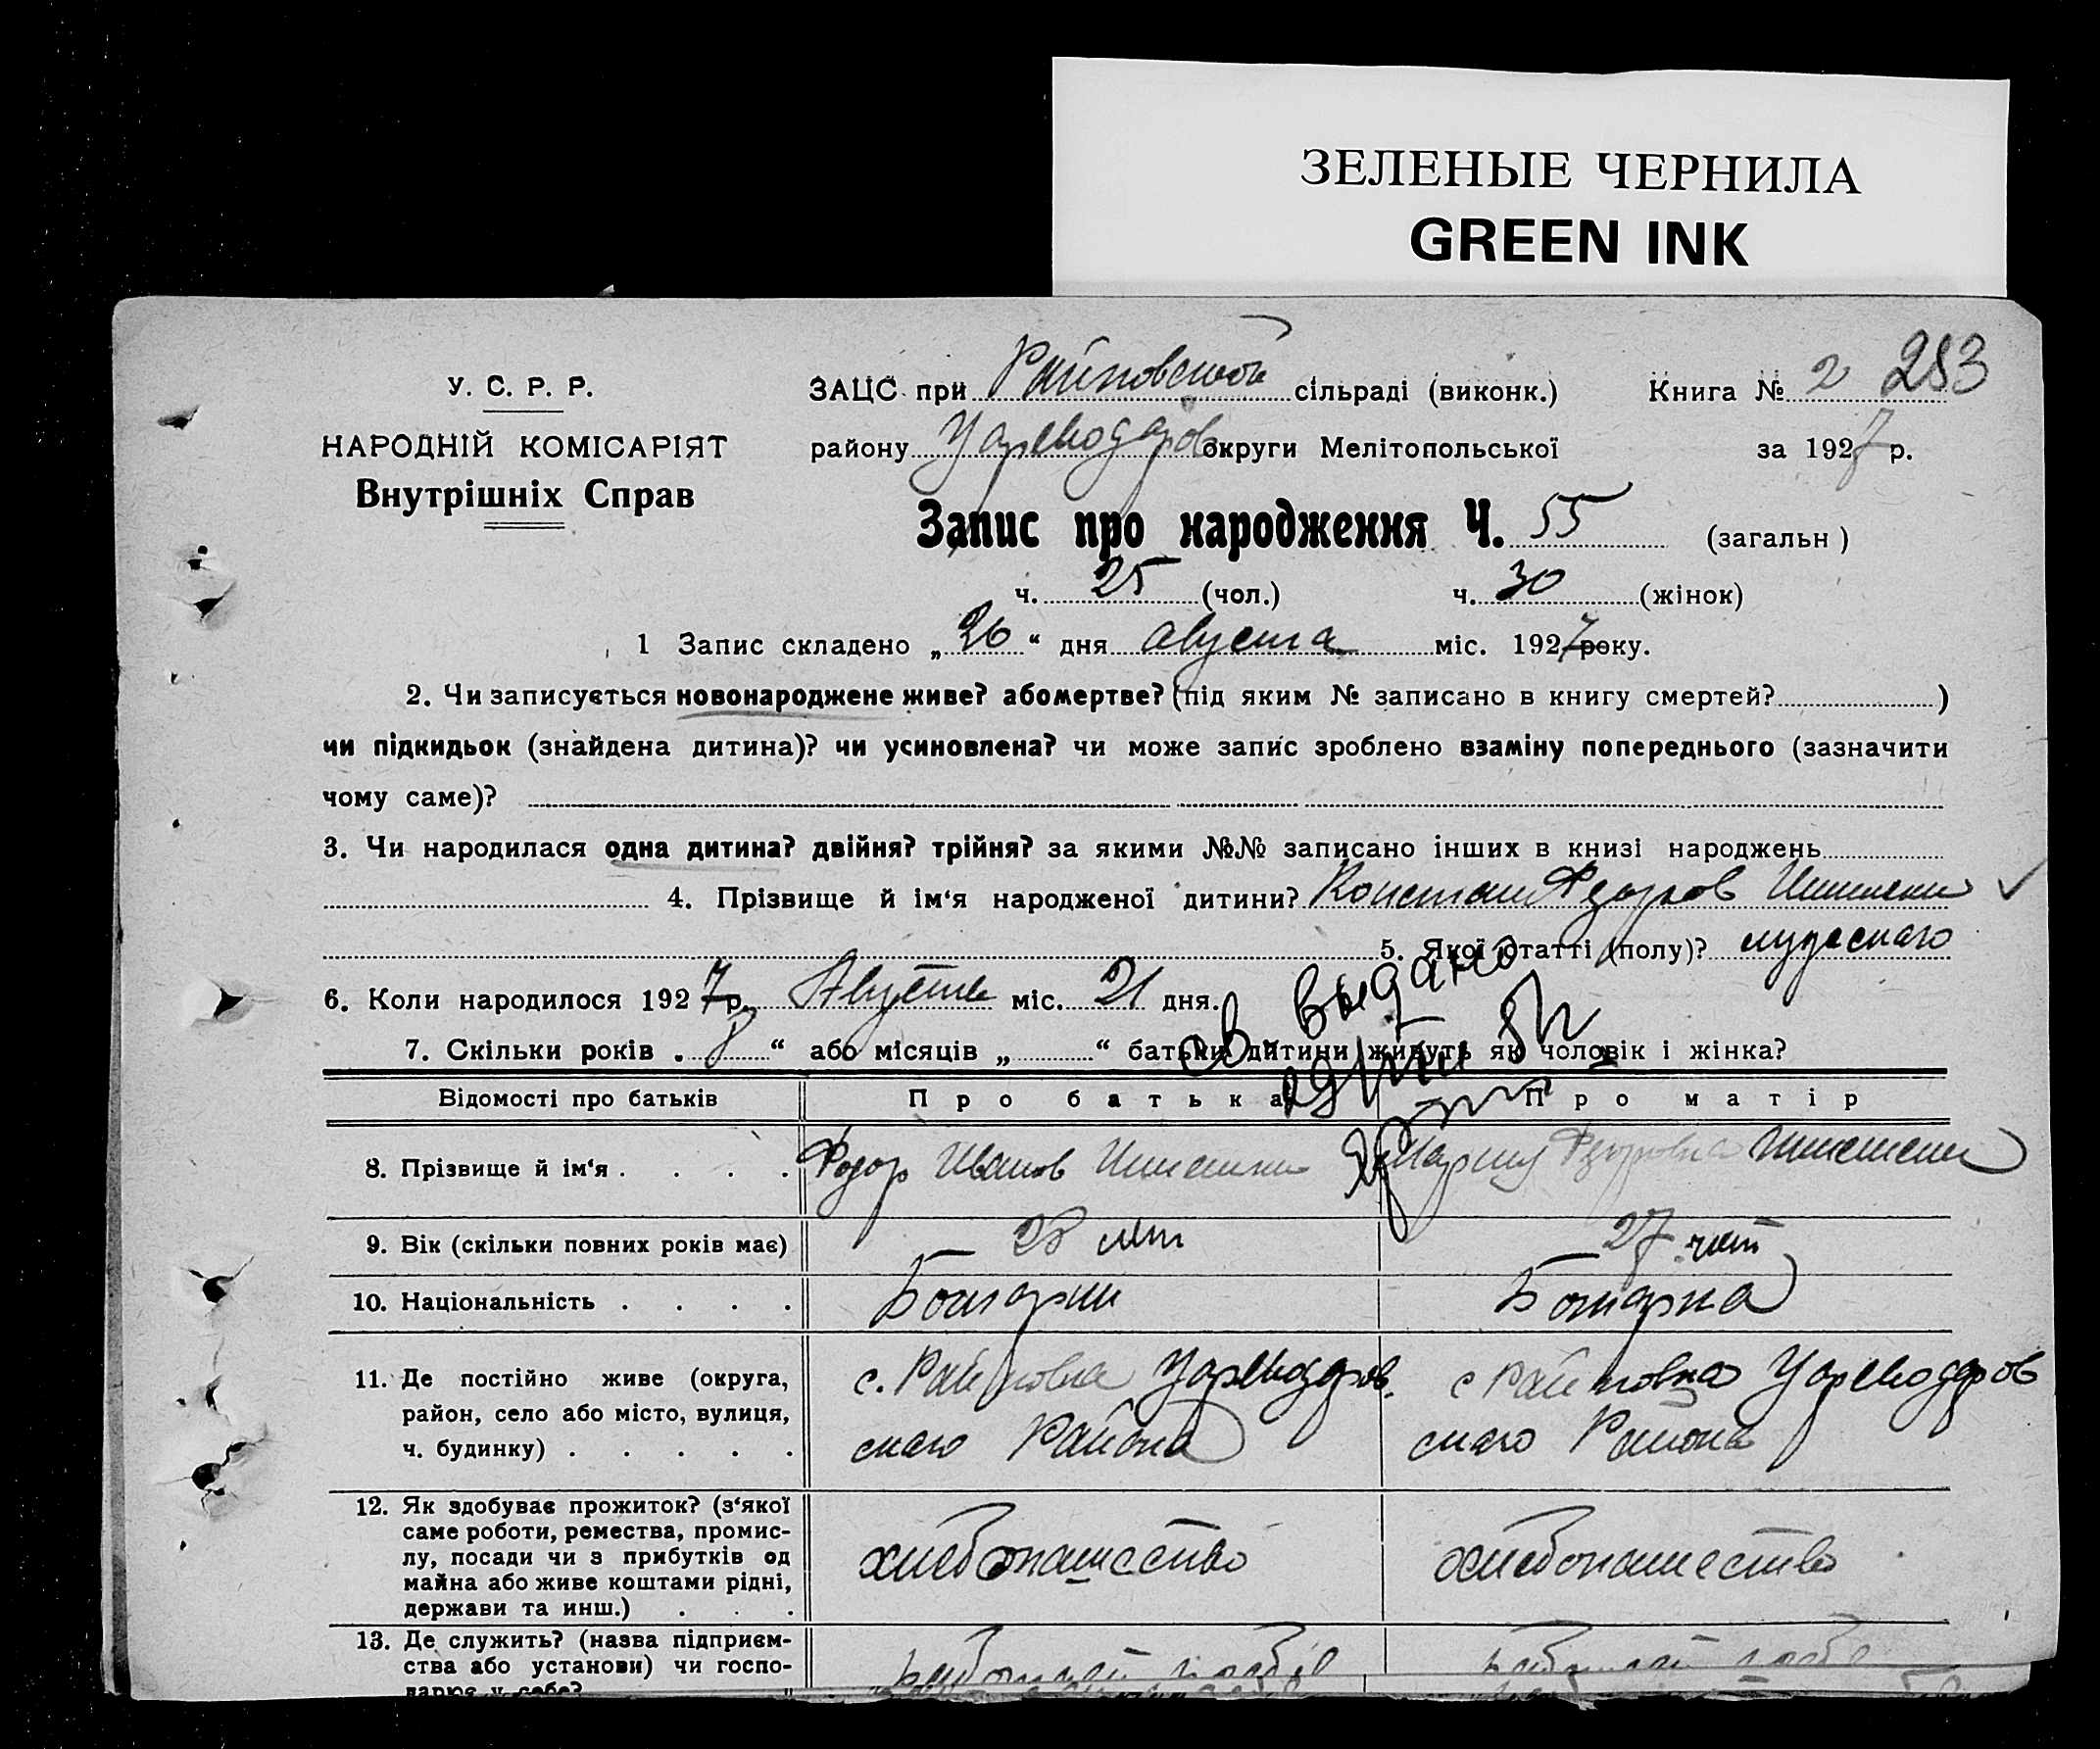 ЗЕЛЕНЫЕ ЧЕРНИЛА
GREEN INK
У. С. Р. Р.
НАРОДНІЙ КОМІСАРІЯТ
Внутрішніх Справ
ЗАЦС при Райновской сільраді (виконк.)
Книга № 2 253
району Цареводаров округи Мелітопольської
за 1927 р.
Запис про народження Ч. 55 (загальн)
ч. 25 (чол.) ч. 30 (жінок)
1 Запис складено „26“ дня августа міс. 1927 року.
2. Чи записується новонароджене живе? або мертве? (під яким № записано в книгу смертей? )
чи підкидьок (знайдена дитина)? чи усиновлена? чи може запис зроблено взаміну попереднього (зазначити
чому саме)?
3. Чи народилася одна дитина? двійня? трійня? за якими №№ записано інших в книзі народжень
4. Прізвище й ім‘я народженої дитини? Констан Федоров
5. Якої статті (полу)? мужскаго
6. Коли народилося 1927 р. Августа міс. 21 дня.
св. выдано
7. Скільки років „8“ або місяців „ “ батьки дитини живуть як чоловік і жінка?
Відомості про батьків
Про батька
Про матір
8. Прізвище й ім‘я . . . .
Федор Иванов
Мария Федоровна
9. Вік (скільки повних років має)
28 лет
27 лет
10. Національність . . . .
Болгарин
Болгарка
11. Де постійно живе (округа,
район, село або місто, вулиця,
ч. будинку) . . . . .
с. Райновка Цареводаров.
скаго Района
с Райновка Цареводаров
скаго Района
12. Як здобуває прожиток? (з‘якої
саме роботи, ремества, промис-
лу, посади чи з прибутків од
майна або живе коштами рідні,
держави та инш.) . . .
хлебопашество
хлебопашество
13. Де служить? (назва підприєм-
ства або установи) чи госпо-
дарює у себе?